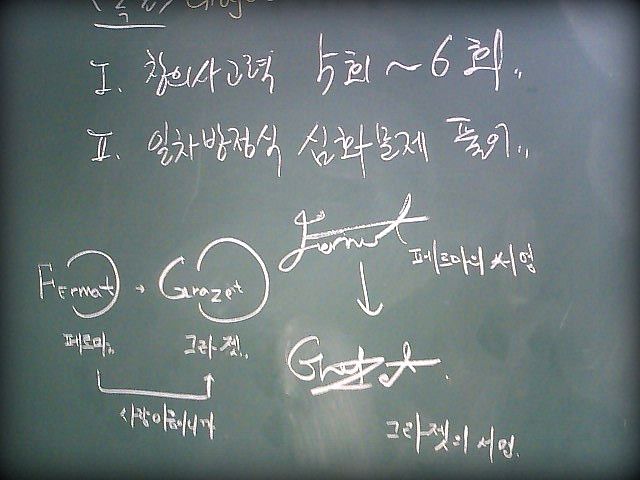 I. 창의사고력 5회~6회..
II. 일차방정식 심화문제 풀이..
Fermat → Grazet
페르마.. 그라젯..
사랑이름이니까
Fermat
페르마의 싸인
↓
그라젯의 서명.